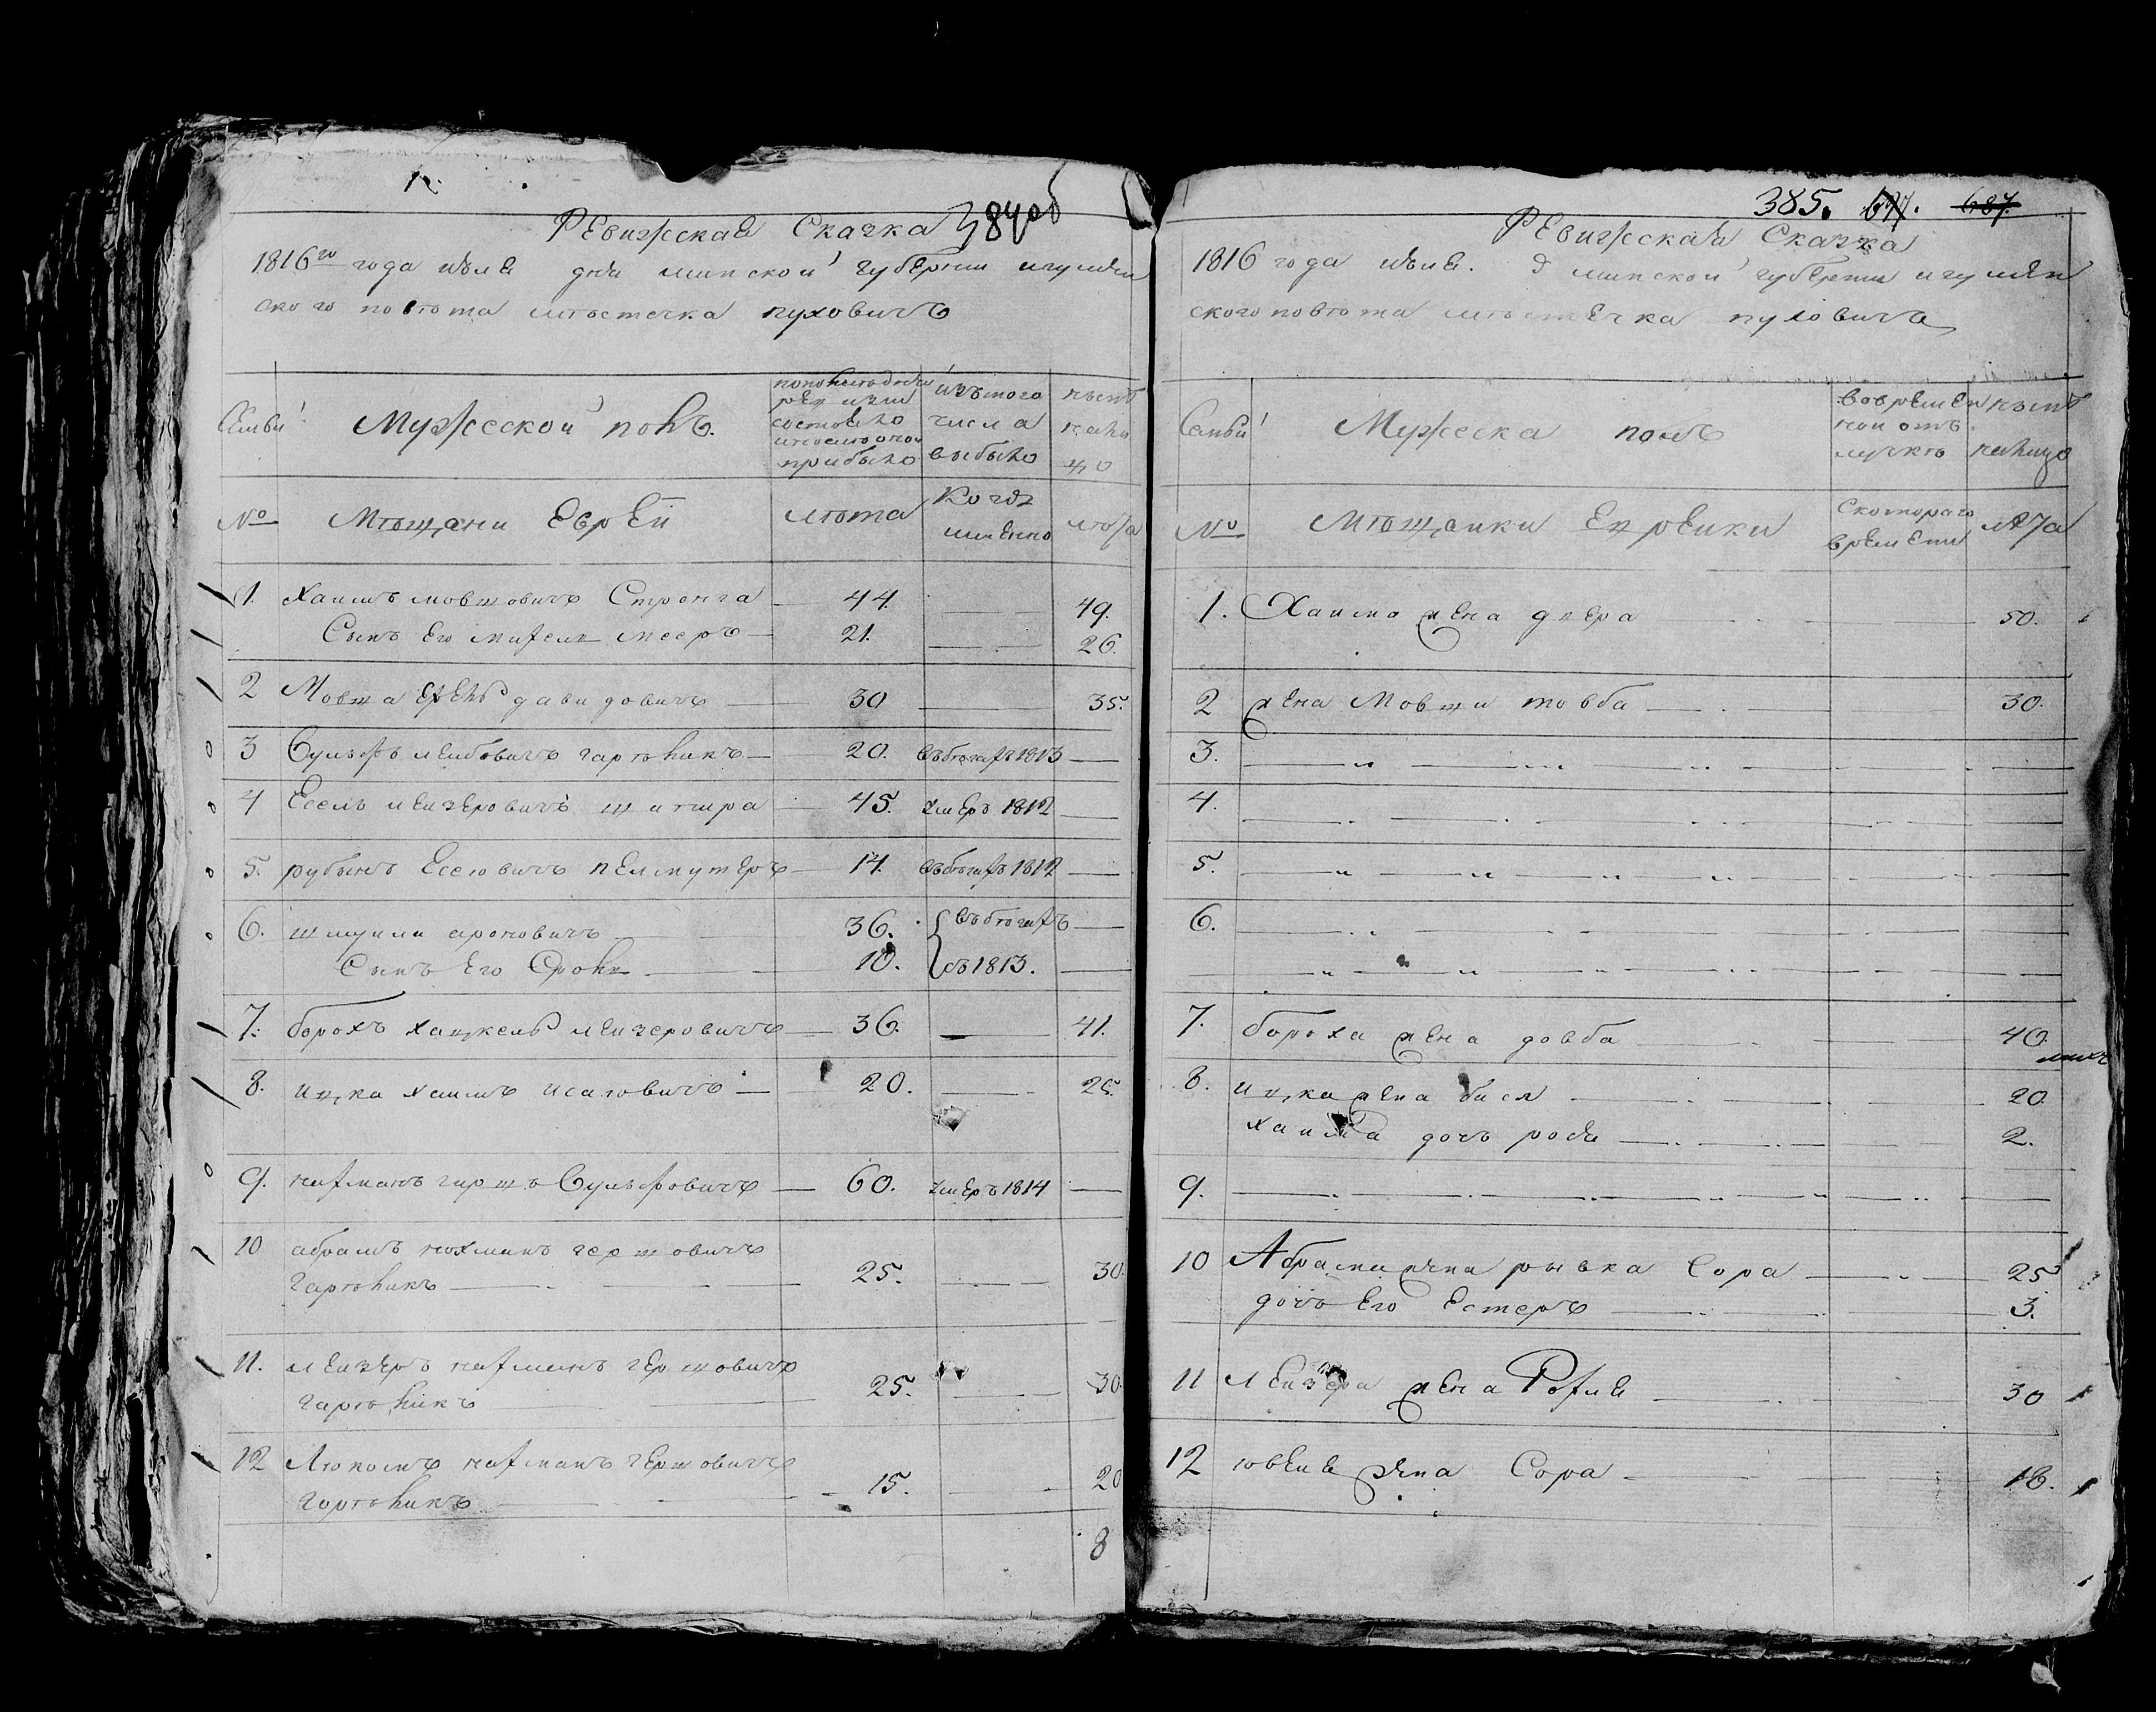 384об
Ревижская Сказка
1816го года июля дня минской губернии игумен
ского повѣта мѣстечка пуховичъ
Семьи
Мужеской полъ.
по последней
ревизии
состояло
и после оной
прибыло
изъ того
числа
выбыло
нынѣ
нали
цо
№
Мѣщани Еврей
лѣта
Когда
именно
лѣта
1. Хаимъ мовшовичъ Стронга 44. 49.
Сынъ Его мееръ 21. 26.
2 Мовша давидовичъ 30 35.
3 лейбовичъ гарѣликъ 20. въ бѣгахъ 1813
4 Есель лейзеровичъ шапира 45. умеръ 1812
5. рубинъ Еселовичъ 14. въ бѣгахъ 1812
6. шмуйла ароновичъ 36. въ бѣгахъ
Сынъ Его 10. съ 1813.
7. борохъ хацкель лейзеровичъ 36. 41.
8. ицка хаимъ исаковичъ 20. 25.
9. нахманъ гиршъ 60. умеръ 1814
10 абрамъ нохманъ гершовичъ
гарѣликъ 25. 30.
11. лейзеръ нахманъ гершовичъ
гарѣликъ 25. 30.
12 нахманъ гершовичъ
горѣликъ 15. 20
8
385. 687.
Ревижская Сказка
1816 года июля. д минской губернии игумен
ского повѣта мѣстечка пуховичъ
Семьи
Мужеска полъ
во времен
ной от
лучкѣ
нынѣ
налицо
№
Мѣщанки Еврейки
Скотораго
времени
лѣта
1. Хаима жена двера 50.
2 жена Мовши товба 30.
3.
4.
5.
6.
7. бороха жена довба 40.
8. ицка жена бася 20.
хаима дочь родя 2.
9.
10 Абрама жена рывка Сора 25
дочь Его Естеръ 3.
11 лейзера жена Рохля 30
12 жена Сора 18.